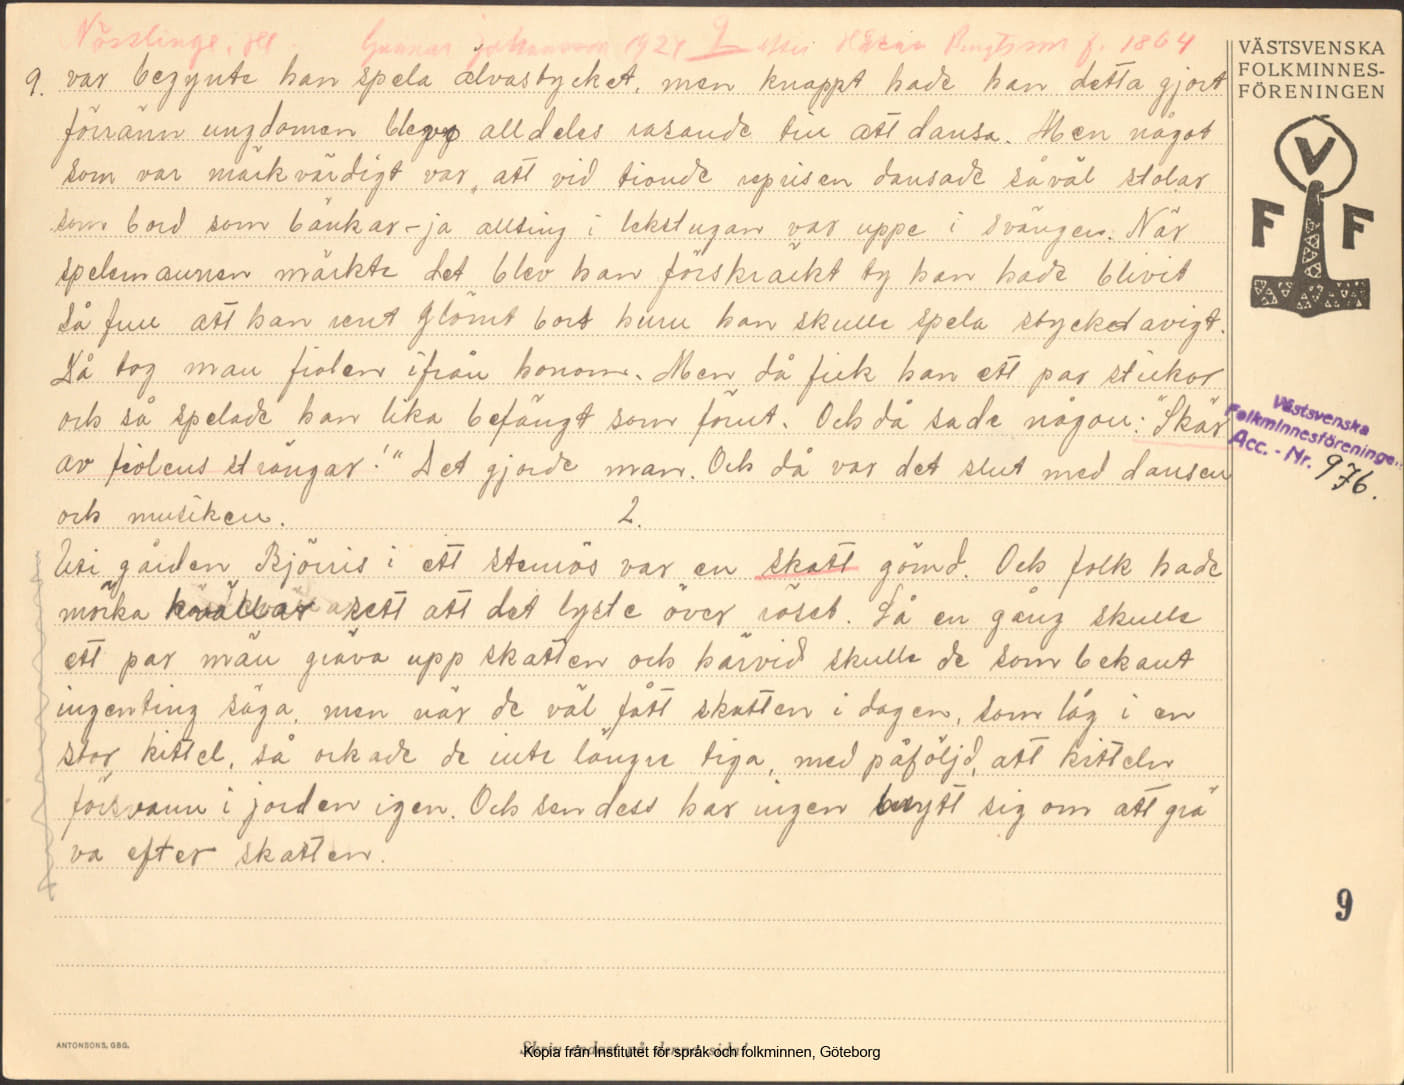 Nösslinge, Hl. Gunnar Johansson 1927 9 efter Bengtsson f. 1864
9. var begynte han spela älvastycket, men knappt hade han detta gjort
förrän ungdomen blev alldeles rasande till att dansa. Men något
som var märkvärdigt var, att vid tionde reprisen dansade såväl stolar
som bord som bänkar – ja allting i lekstugan var uppe i svängen. När
spelemannen märkte det blev han förskräckt ty han hade blivit
så full att han rent glömt bort huru han skulle spela stycket avigt.
Då tog man fiolen ifrån honom. Men då fick han ett par stickor
och så spelade han lika befängt som förut. Och då sade någon: "Skär
av fiolens strängar!" Det gjorde man. Och då var det slut med dansen
och musiken. 2.
Uti gården Björris i ett stenrös var en skatt gömd. Och folk hade
mörka kvällar sett att det lyste över röset. Så en gång skulle
ett par män gräva upp skatten och härvid skulle de som bekant
ingenting säga, men när de väl fått skatten i dagen, som låg i en
stor kittel, så orkade de inte längre tiga, med påföljd, att kitteln
försvann i jorden igen. Och sen dess har ingen brytt sig om att grä
va efter skatten.
VÄSTSVENSKA
FOLKMINNES-
FÖRENINGEN
V
F F
Västsvenska
Folkminnesföreningen
Acc. - Nr. 976.
9
ANTONSONS, GBG.
Skriv endast på denna sida!
Kopia från Institutet för språk och folkminnen, Göteborg